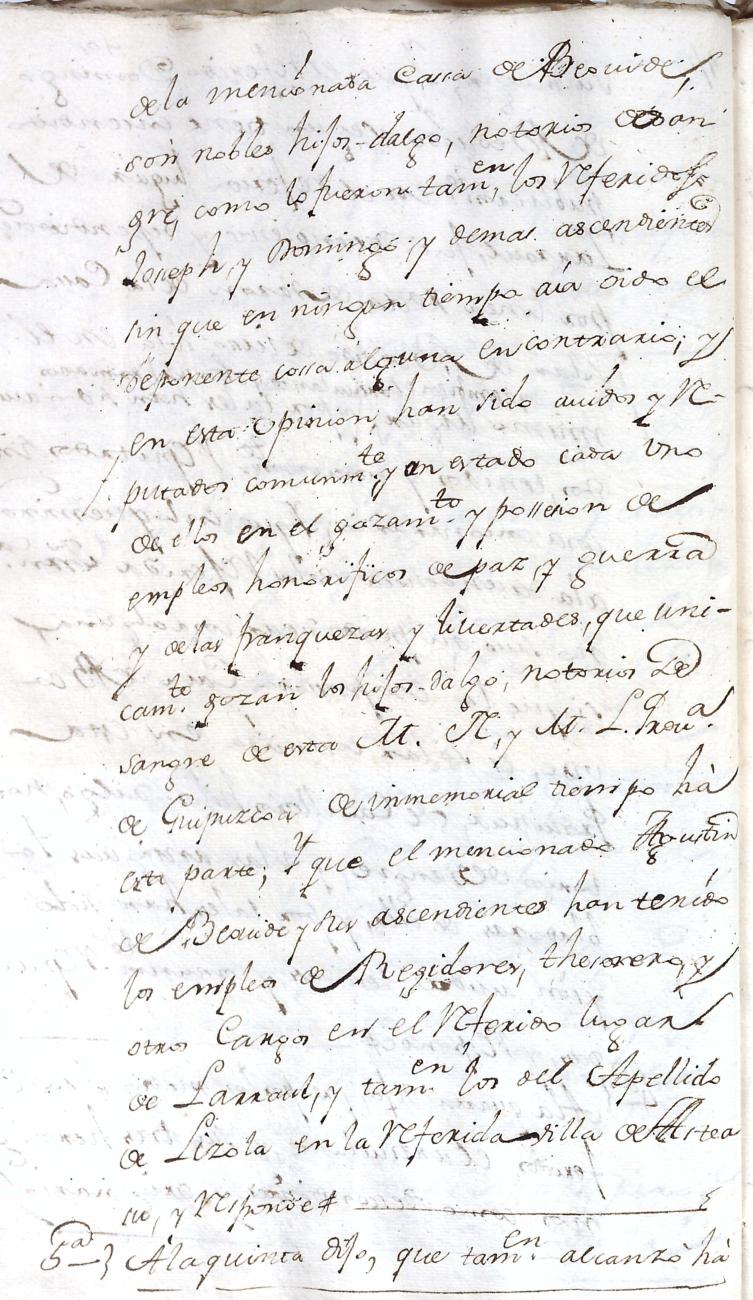 de la mencionada Cassa de Beovide,
son nobles hijos-dalgo, notorios de san
gre, como lo fueron tamen, los Referidos
Joseph, y Domingo, y demas ascendientes
sin que en ningun tiempo aia oido el
deponente cossa alguna en contrario; y
en esta opinion han sido avidos y Re-
putados comunmte y an estado cada uno
de ellos en el gozamto y possesion de
empleos honorificos de paz, y guerra
y de las franquezas y livertades, que uni-
camto gozan los hijos-dalgo, notorios de
sangre de esta M. N., y M. L. Prova
de Guipuzcoa de inmemorial tiempo hà
esta parte; Y que el mencionado Agustin
de Beaude y sus ascendientes han tenido
los empleos de Regidores, thesorero, y
otros Cargos en el Referido lugar
de Larraul, y tamen los del Apellido
de Lizola en la Referida villa de Astea
su, y Responde
5a} A la quinta dijo, que tamen alcanzò hà